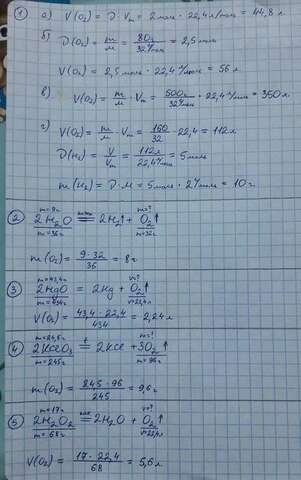 ① а) V(O₂) = ν · Vm = 2 моль · 22,4 л/моль = 44,8 л
б) ν = m/M = 80г/32г/моль = 2,5 моль
V(O₂) = 2,5 моль · 22,4 л/моль = 56 л
в) V(O₂) = m/M · Vm = 500г/32г/моль · 22,4 л/моль = 350 л.
г) V(O₂) = m/M · Vm = 160/32 · 22,4 = 112л
ν(H₂) = V/Vm = 112л/22,4л/моль = 5 моль
m(H₂) = ν · M = 5 моль · 2г/моль = 10 г.
m=9г m=?
② 2H₂O = 2H₂↑ + O₂↑
m=36г m=32г
m(O₂) = 9·32/36 = 8г
m=43,4г v=?
③ 2HgO = 2Hg + O₂↑
m=434г v=22,4л
V(O₂) = 43,4 · 22,4/434 = 2,24л
m=24,5г m=?
④ 2KClO₃ =t 2KCl + 3O₂↑
m=245г m=96г
m(O₂) = 245 · 96/245 = 9,6г
m=17г v=?
⑤ 2H₂O₂ = 2H₂O + O₂↑
m=68г v=22,4л
V(O₂) = 17 · 22,4/68 = 5,6л